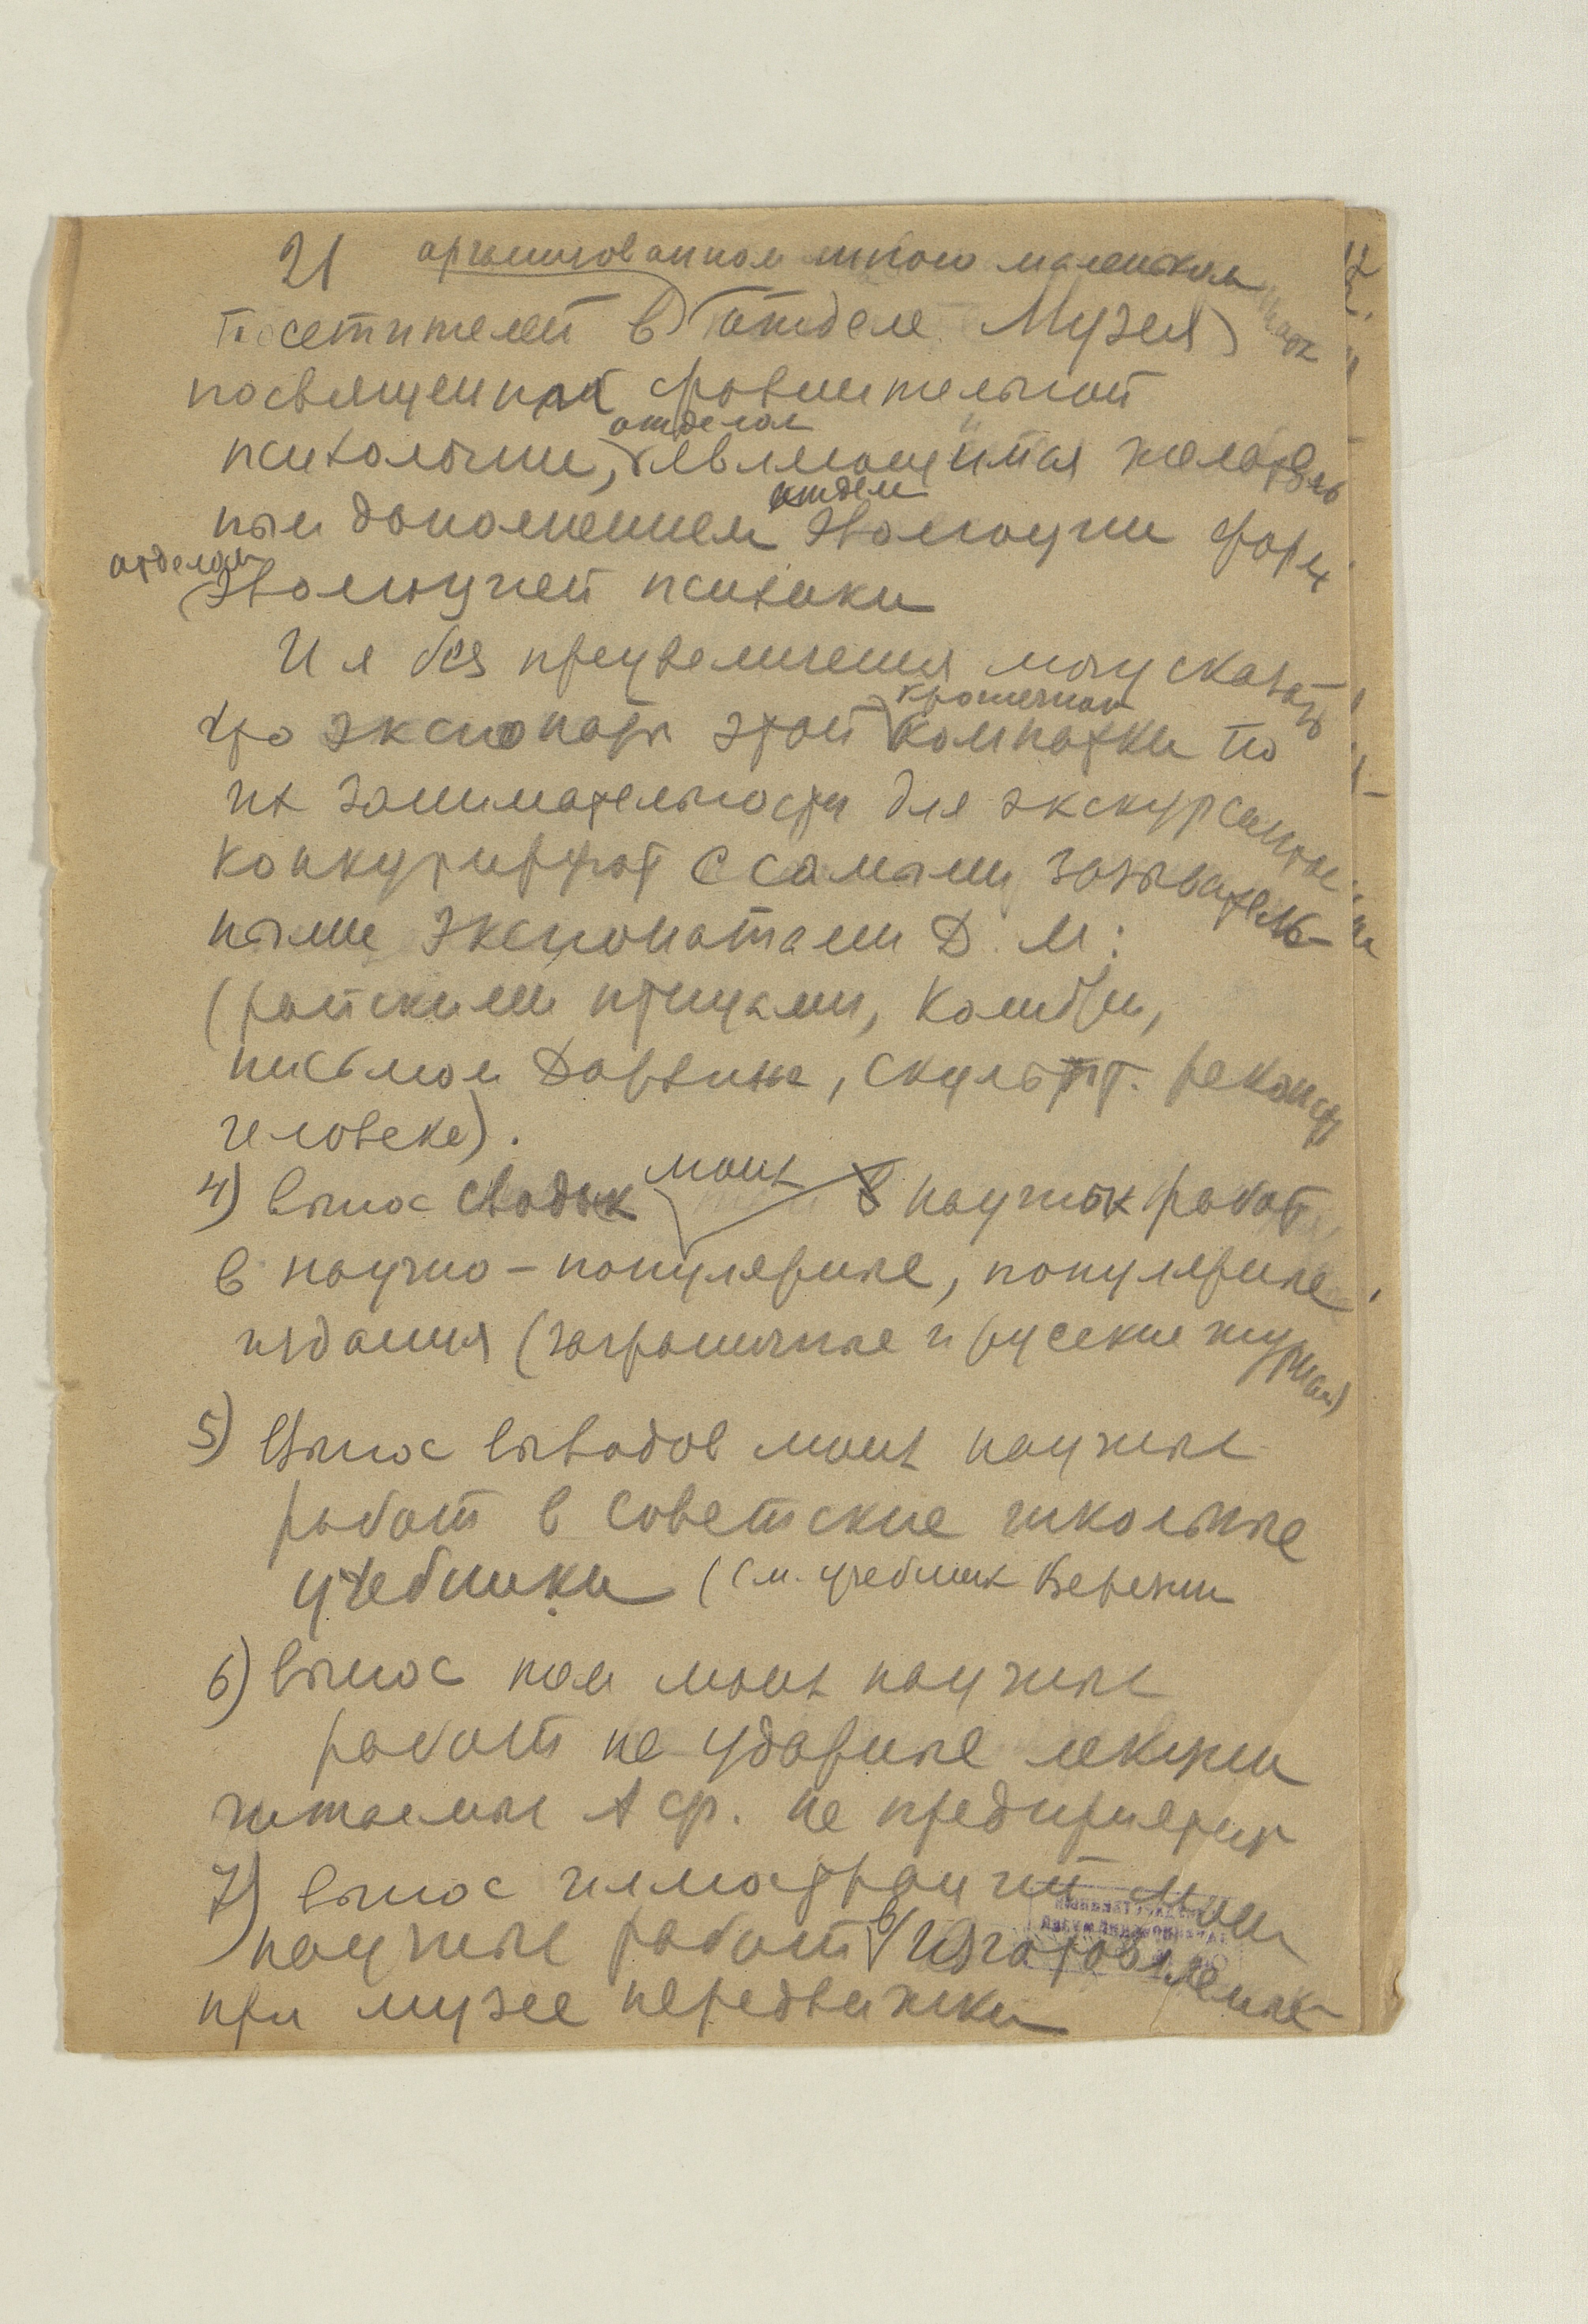 21 организованном мною маленьком
посетителей в отделе Музея
посвященной сравнительной
психологии, отделом являющимся желатель
ным дополнением отдела эволюции форм
отделом эволюцией психики
И я без преувеличения могу сказать
что экспонаты этой крошечной комнатки по
их занимательности для экскурсантов
конкурируют с самыми завлекатель-
ными экспонатами Д. М:
(райскими птицами, колибри,
письмом Дарвина, скульпт. реконст
человека).
4) вынос сводок моих научных работ
в научно-популярные, популярные
издания (заграничные и русские журнал)
5) Вынос выводов моих научных
работ в советские школьные
учебники (См. учебник Верзин
6) вынос тем моих научных
работ на ударные лекции
читаемые А Ф. на предприятиях
7) вынос иллюстраций моих
научных работ в изготовленные
при музее передвижки